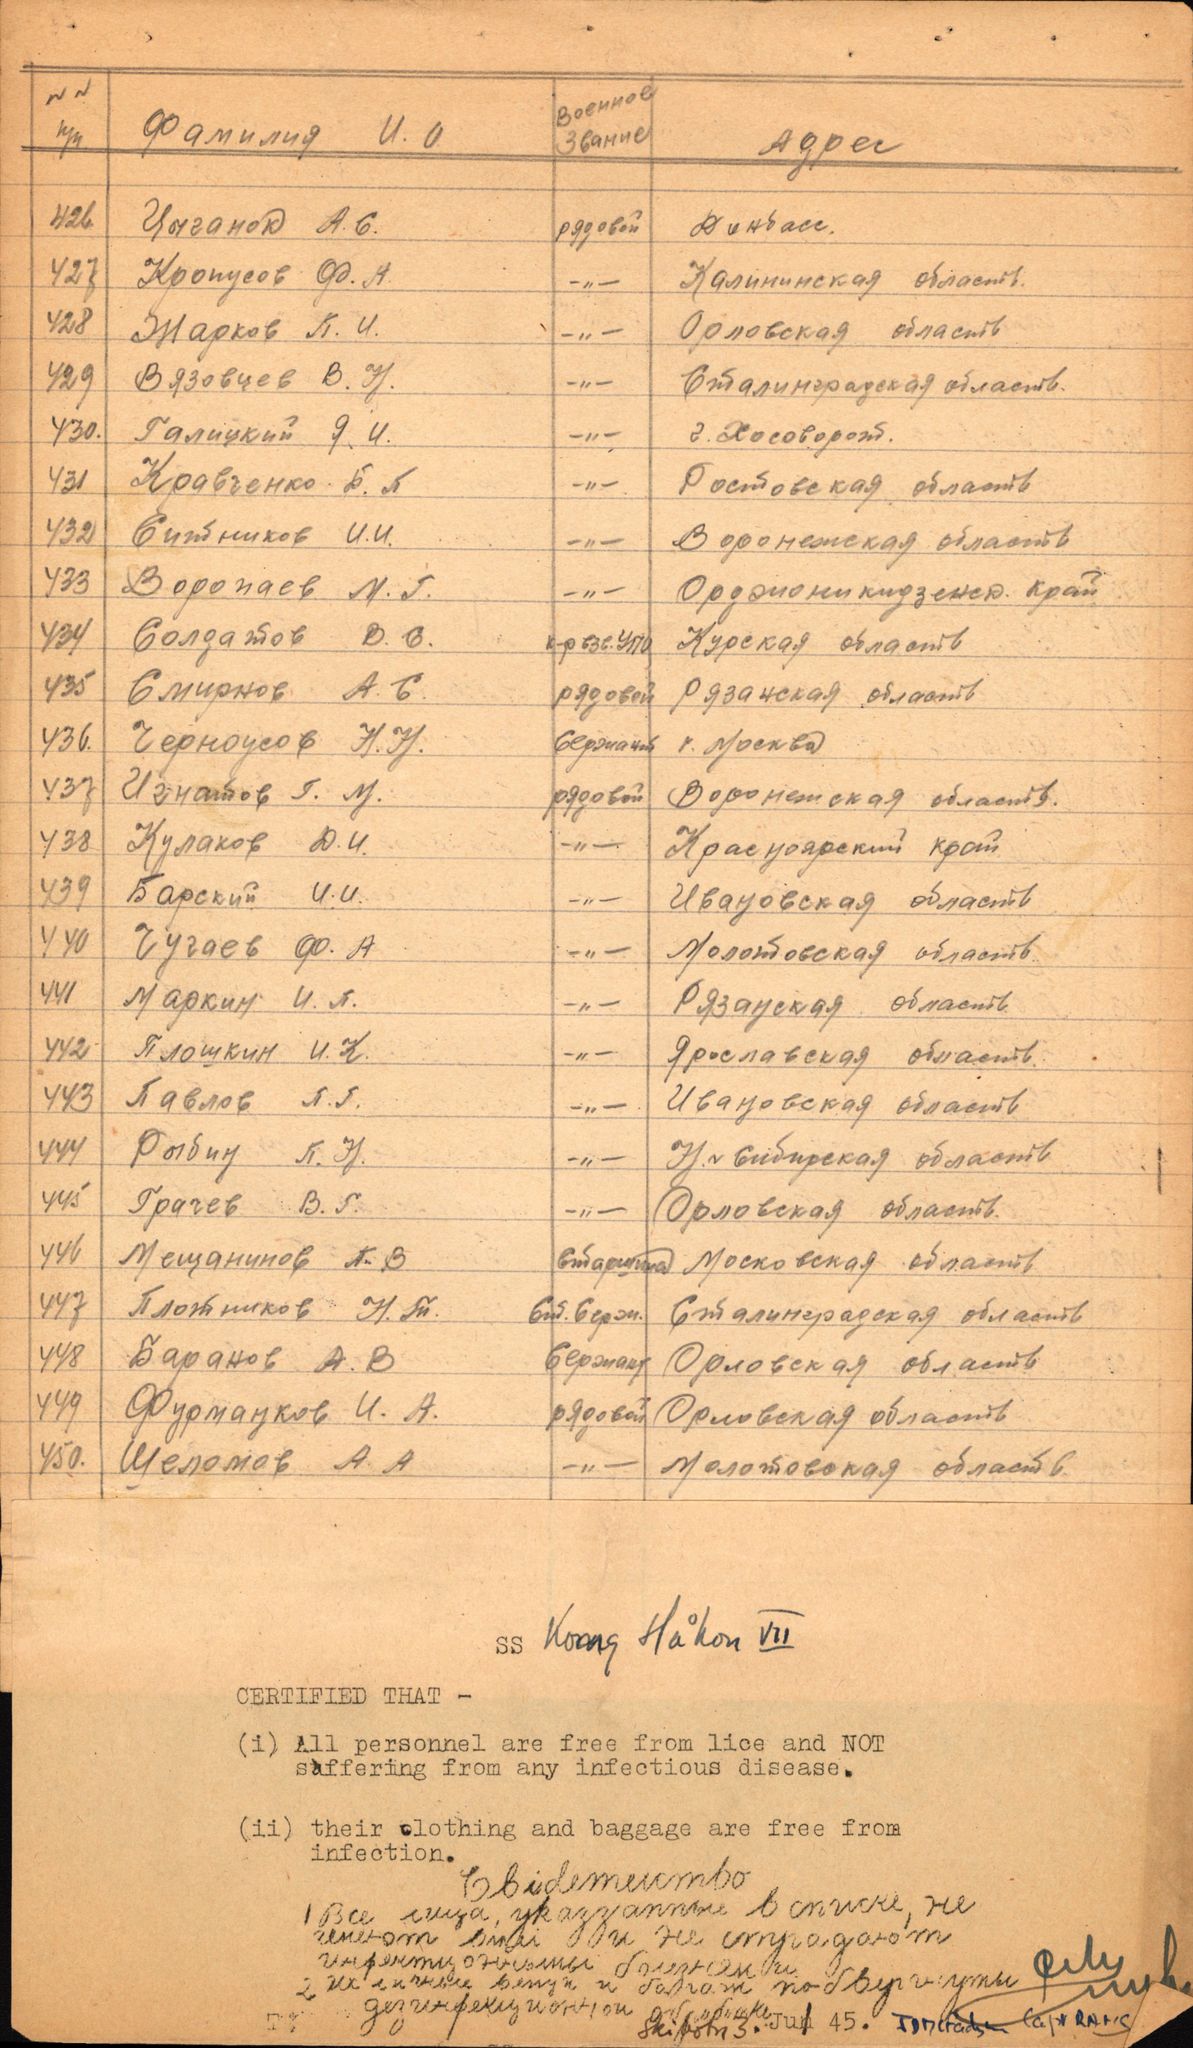 № №
п/п Фамилия И. О Военное Звание Адрес
426 Цыганов А. С. рядовой Донбасс.
427 Кропусов Ф. А -"- Калининская область.
428 Жарков П. И. -"- Орловская область
429 Вязовцев В. Н. -"- Сталинградская область.
430. Галицкий Я. И. -"- г.
431 Кравченко Б. П -"- Ростовская область
432 Ситников И. И. -"- Воронежская область
433 Воропаев М. Г. -"- Орджоникидзенск. край
434 Солдатов В. С. к-р взв. Курская область
435 Смирнов А. С. рядовой Рязанская область
436. Черноусов Н. Н. Сержант г. Москва
437 Игнатов Г. М. рядовой Воронежская область.
438 Кулаков Д. И. -"- Красноярский край
439 Барский И. И. -"- Ивановская область
440 Чугаев Ф. А -"- Молотовская область
441 Маркин И. П. -"- Рязанская область
442 Плошкин И. К. -"- Ярославская область.
443 Павлов П. Г. -"- Ивановская область
444 Рыбин П. Н. -"- Н. Сибирская область
445 Грачев В. Г. -"- Орловская область.
446 Мещанинов П. В старшина Московская область
447 Плотников Н. Т. Ст. Серж. Сталинградская область
448 Баранов А. В Сержант Орловская область
449 Фурманков И. А. рядовой Орловская область
450. Шеломов А. А -"- Молотовская область.
SS Kong Håkon VII
CERTIFIED THAT -
(i) All personnel are free from lice and NOT
suffering from any infectious disease.
(ii) their clothing and baggage are free from
infection.
1 Все лица, указанные в списке, не
имеют вшей и не страдают
инфекционными болезнями
2 их личные вещи и багаж подвергнуты
дезинфекционной обработке
3. Jul 45. Capt RAMC